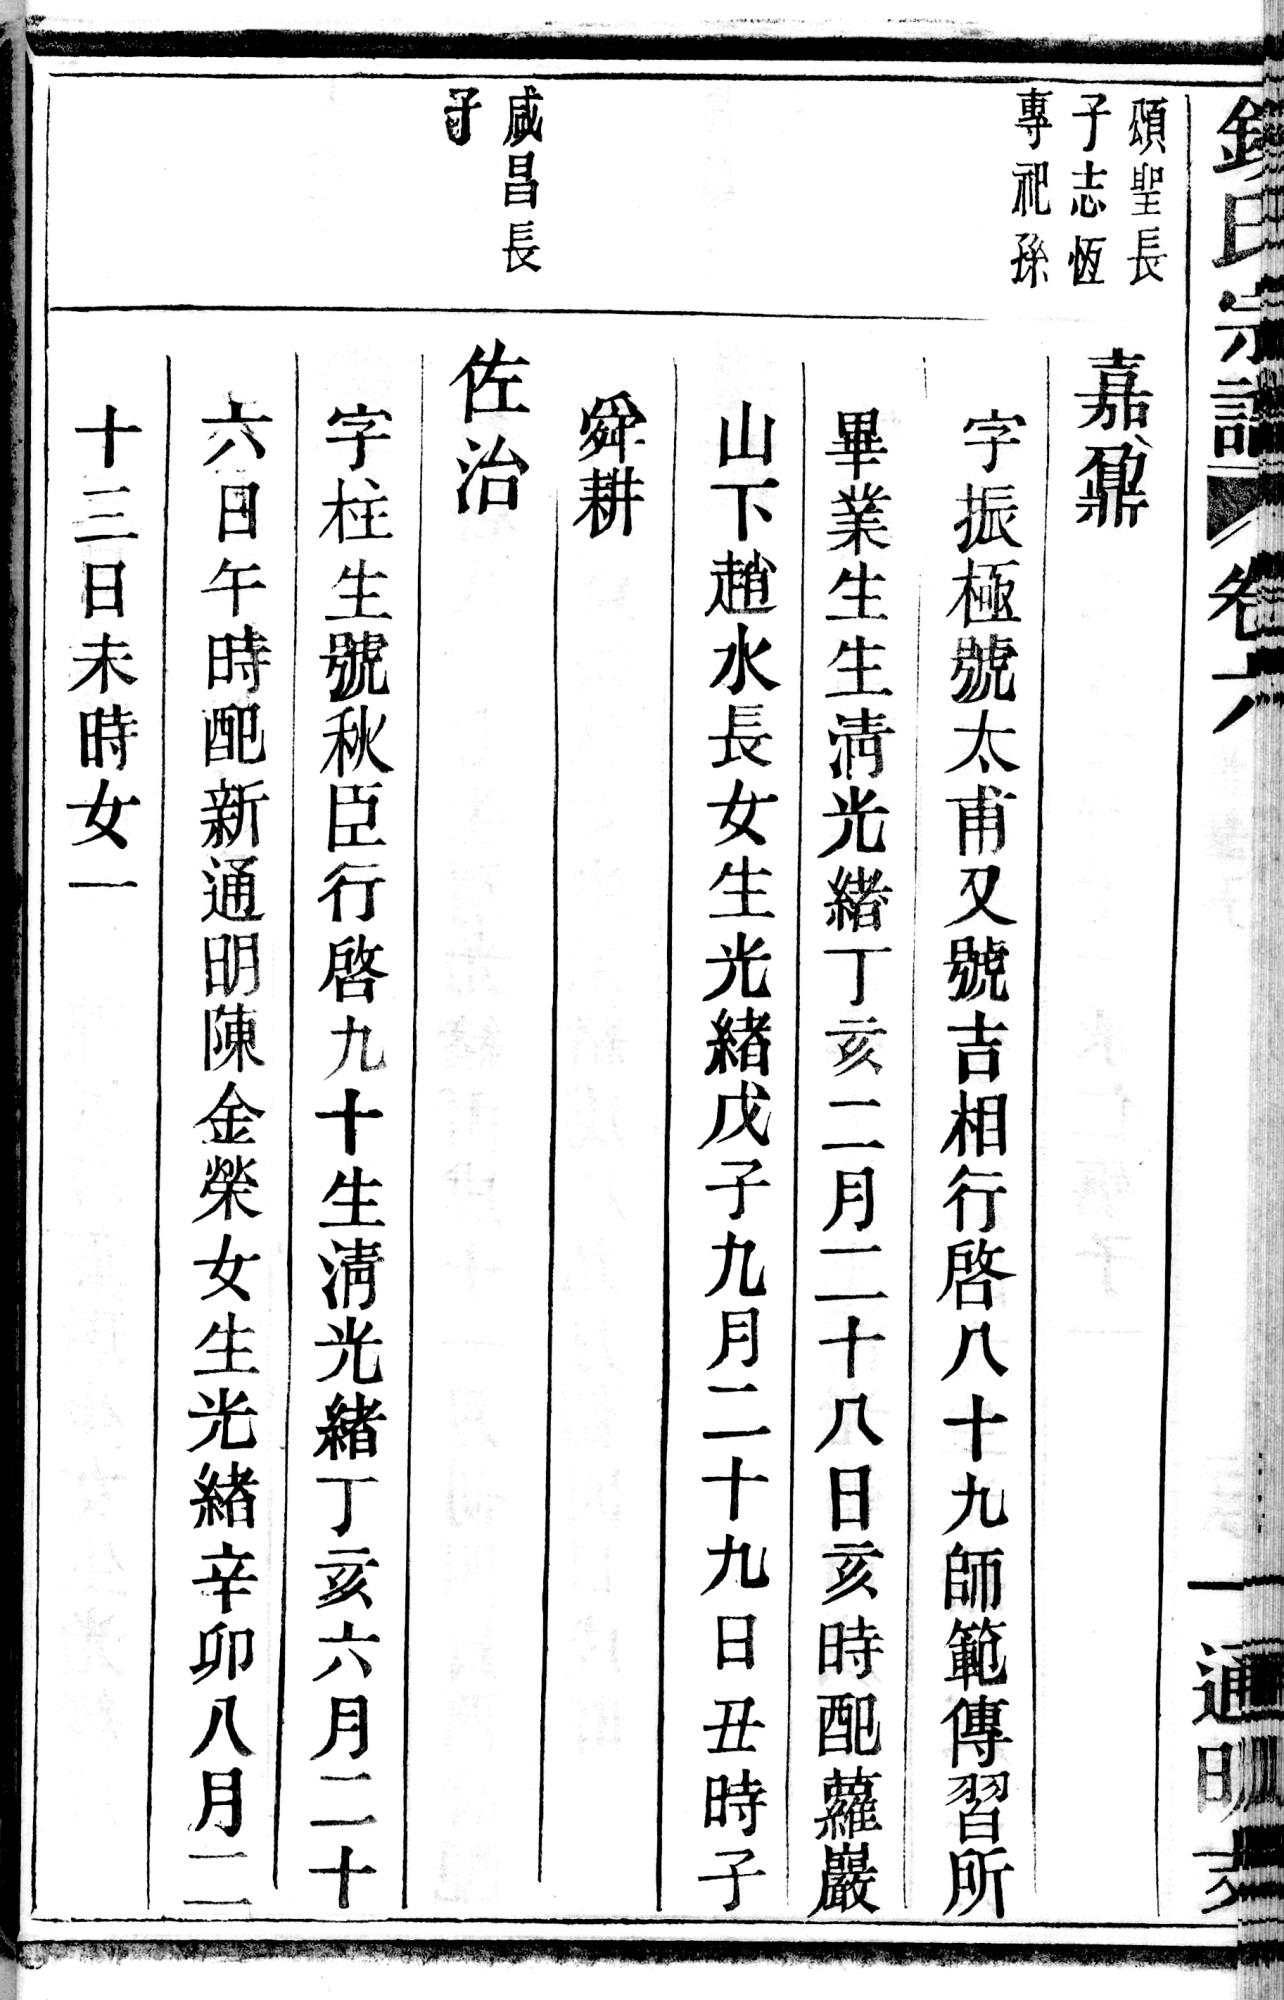 錢氏宗譜 卷六 一 通明支
頌聖長
子志恆
專祀孫
嘉鼐
字振極號太甫又號吉相行啓八十九師範傳習所
畢業生生淸光緖丁亥二月二十八日亥時配蘿巖
山下趙水長女生光緖戊子九月二十九日丑時子
舜耕
咸昌長
子
佐治
字柱生號秋臣行啓九十生淸光緖丁亥六月二十
六日午時配新通明陳金榮女生光緖辛卯八月二
十三日未時女一